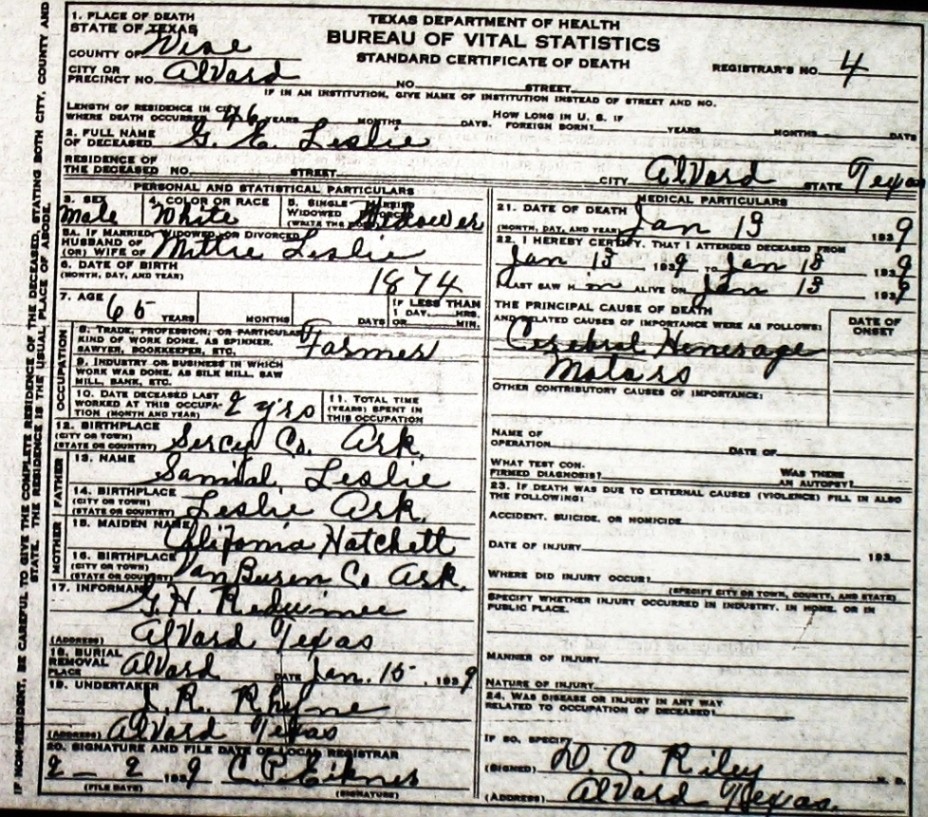 TEXAS DEPARTMENT OF HEALTH
BUREAU OF VITAL STATISTICS
STANDARD CERTIFICATE OF DEATH
REGISTRAR'S NO. 4
1. PLACE OF DEATH
STATE OF TEXAS
COUNTY OF Wise
CITY OR
PRECINCT NO. Alvard NO. STREET
IF IN AN INSTITUTION, GIVE NAME OF INSTITUTION INSTEAD OF STREET AND NO.
LENGTH OF RESIDENCE IN CITY
WHERE DEATH OCCURRED 46 YEARS MONTHS DAYS. HOW LONG IN U. S. IF FOREIGN BORN? YEARS MONTHS DAYS
2. FULL NAME
OF DECEASED G. E. Leslie
RESIDENCE OF
THE DECEASED NO. STREET CITY Alvard STATE Texas
PERSONAL AND STATISTICAL PARTICULARS
3. SEX Male
4. COLOR OR RACE White
5. SINGLE
WIDOWED Widower
5A. IF MARRIED, WIDOWED, OR DIVORCED
HUSBAND OF
(OR) WIFE OF Mittie Leslie
6. DATE OF BIRTH
(MONTH, DAY, AND YEAR) 1874
7. AGE 65 YEARS MONTHS DAYS
IF LESS THAN
1 DAY, HRS.
OR MIN.
OCCUPATION
8. TRADE, PROFESSION, OR PARTICULAR
KIND OF WORK DONE, AS SPINNER,
SAWYER, BOOKKEEPER, ETC. Farmer
9. INDUSTRY OR BUSINESS IN WHICH
WORK WAS DONE, AS SILK MILL, SAW
MILL, BANK, ETC.
10. DATE DECEASED LAST
WORKED AT THIS OCCUPA-
TION (MONTH AND YEAR) 2 yrs
11. TOTAL TIME
(YEARS) SPENT IN
THIS OCCUPATION
12. BIRTHPLACE
(CITY OR TOWN)
(STATE OR COUNTRY) Sercy Co. Ark.
FATHER
13. NAME Leslie
14. BIRTHPLACE
(CITY OR TOWN)
(STATE OR COUNTRY) Leslie Ark.
MOTHER
15. MAIDEN NAME California Hatchett
16. BIRTHPLACE
(CITY OR TOWN)
(STATE OR COUNTRY) Van Buren Co Ark.
17. INFORMANT G. H.
(ADDRESS) Alvard Texas
18. BURIAL
REMOVAL
PLACE Alvard DATE Jan. 15, 1939
19. UNDERTAKER L. R. Rhyne
(ADDRESS) Alvard Texas
20. SIGNATURE AND FILE DATE OF LOCAL REGISTRAR
2 - 2 1939 C. P.
(FILE DATE) (SIGNATURE)
MEDICAL PARTICULARS
21. DATE OF DEATH
(MONTH, DAY, AND YEAR) Jan 13 1939
22. I HEREBY CERTIFY, THAT I ATTENDED DECEASED FROM
Jan 13 1939 TO Jan 13 1939
I LAST SAW HIM ALIVE ON Jan 13 1939
THE PRINCIPAL CAUSE OF DEATH
AND RELATED CAUSES OF IMPORTANCE WERE AS FOLLOWS:
DATE OF
ONSET
Cerebral Hemerage
OTHER CONTRIBUTORY CAUSES OF IMPORTANCE:
NAME OF
OPERATION DATE OF
WHAT TEST CON-
FIRMED DIAGNOSIS? WAS THERE AN AUTOPSY?
23. IF DEATH WAS DUE TO EXTERNAL CAUSES (VIOLENCE) FILL IN ALSO
THE FOLLOWING:
ACCIDENT, SUICIDE, OR HOMICIDE
DATE OF INJURY 193
WHERE DID INJURY OCCUR?
(SPECIFY CITY OR TOWN, COUNTY, AND STATE)
SPECIFY WHETHER INJURY OCCURRED IN INDUSTRY, IN HOME, OR IN
PUBLIC PLACE.
MANNER OF INJURY
NATURE OF INJURY
24. WAS DISEASE OR INJURY IN ANY WAY
RELATED TO OCCUPATION OF DECEASED?
IF SO, SPECIFY
(SIGNED) D. C. Riley M. D.
(ADDRESS) Alvard Texas.
IF NON-RESIDENT, BE CAREFUL TO GIVE THE COMPLETE RESIDENCE OF THE DECEASED, STATING BOTH CITY, COUNTY AND
STATE. THE RESIDENCE IS THE USUAL PLACE OF ABODE.